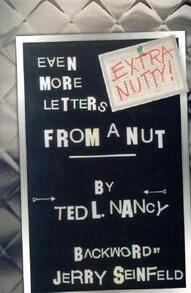 EVEN
MORE
LETTERS
EXTRA
NUTTY!
FROM A NUT
BY
TED L. NANCY
BACKWORD BY
JERRY SEINFELD